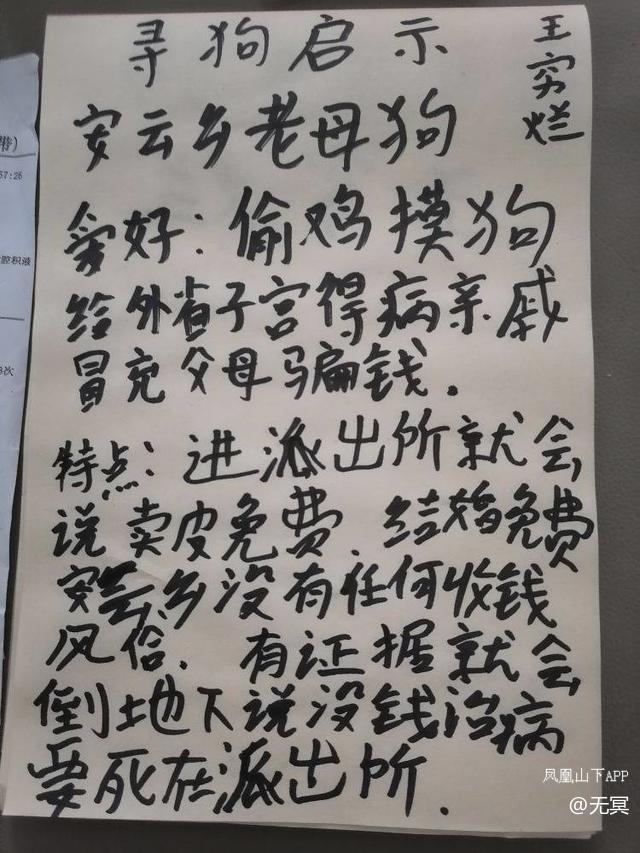 寻狗启示
王穷烂
安云乡老母狗
爱好：偷鸡摸狗
给外省子宫得病亲戚
冒充父母骗钱.
特点：进派出所就会
说卖皮免费.结婚免费
安云乡没有任何收钱
风俗. 有证据就会
倒地下说没钱治病
要死在派出所.
带）
57:26
腔积液
3次
凤凰山下APP
@无冥